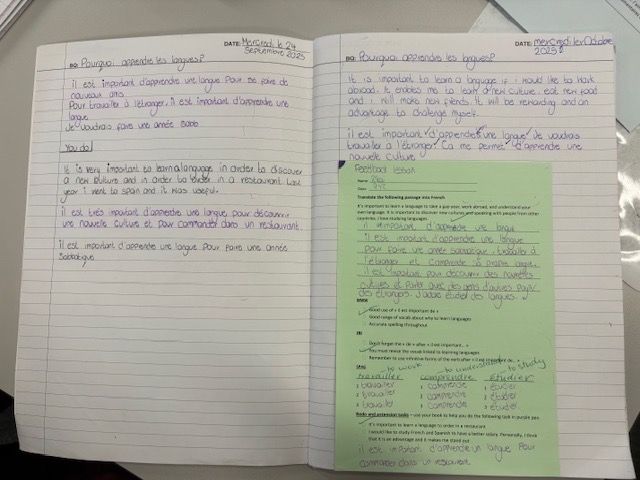 DATE: Mercredi le 24
Septembre 2025
BQ: Pourquoi apprendre les langues?
il est important d'apprendre une langue pour se faire de
nouveaux amis.
Pour travailler à l'étranger, il est important d'apprendre une
langue
Je voudrais faire une année sabb
You do!
It is very important to learn a language in order to discover
a new culture and in order to order in a restaurant. Last
year I went to spain and it was useful.
il est très important d'apprendre une langue, pour découvrir
une nouvelle culture et pour commander dans un restaurant
il est important d'apprendre une langue pour faire une année
sabbatique
DATE: mercredi 1er Octobre
2025
BQ: Pourquoi apprendre les langues?
It is important to learn a language if I would like to work
abroad. It enables me to learn a new culture, eat new food
and I will make new friends. It will be rewarding and an
advantage to challenge myself.
il est important d'apprendre une langue. Je voudrais
travailler à l'étranger. Ca me permet d'apprendre une
nouvelle culture
Feedback lesson
Name:
Class:
Translate the following passage into French
It's important to learn a language to take a gap year, work abroad, and understand your
own language. It is important to discover new cultures and speaking with people from other
countries. I love studying languages.
il est important d'apprendre une langue
pour faire une année sabbatique, travailler à
l'étranger et comprendre sa propre langue.
il est important pour découvrir des nouvelles
cultures et parler avec des gens d'autres pays
des étrangers. J'adore étudier des langues.
WWW
Good use of « il est important de »
Good range of vocab about why to learn languages
Accurate spelling throughout
EBI
Don't forget the « de » after « il est important... »
You must revise the vocab linked to learning languages
Remember to use infinitive forms of the verb after « il est important de... »
to work to understand to study
travailler comprendre étudier
travailler comprendre étudier
travailler comprendre étudier
travailler comprendre étudier
Redo and extension tasks – use your book to help you do the following task in purple pen
It's important to learn a language to order in a restaurant
I would like to study French and Spanish to have a better salary. Personally, I think
that it is an advantage and it makes me stand out
il est important d'apprendre un langue pour
commander dans un restaurant